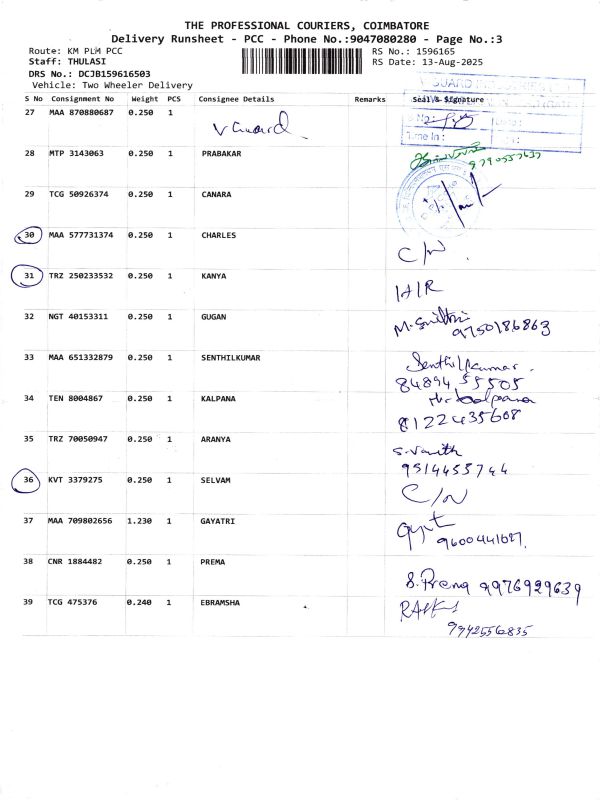 THE PROFESSIONAL COURIERS, COIMBATORE
Delivery Runsheet - PCC - Phone No.:9047080280 - Page No.:3
Route: KM PLM PCC RS No.: 1596165
Staff: THULASI RS Date: 13-Aug-2025
DRS No.: DCJB159616503
Vehicle: Two Wheeler Delivery
S No Consignment No Weight PCS Consignee Details Remarks Seal & Signature
27 MAA 870880687 0.250 1 V Guard
Time In :
28 MTP 3143063 0.250 1 PRABAKAR
29 TCG 50926374 0.250 1 CANARA
30 MAA 577731374 0.250 1 CHARLES C/N
31 TRZ 250233532 0.250 1 KANYA
32 NGT 40153311 0.250 1 GUGAN 9750186863
33 MAA 651332879 0.250 1 SENTHILKUMAR Senthilkumar.
84894 55505
34 TEN 8004867 0.250 1 KALPANA kalpana
8122435608
35 TRZ 70050947 0.250 1 ARANYA
9514455744
36 KVT 3379275 0.250 1 SELVAM C/N
37 MAA 709802656 1.230 1 GAYATRI
38 CNR 1884482 0.250 1 PREMA S. Prema 9976929639
39 TCG 475376 0.240 1 EBRAMSHA
9942556835